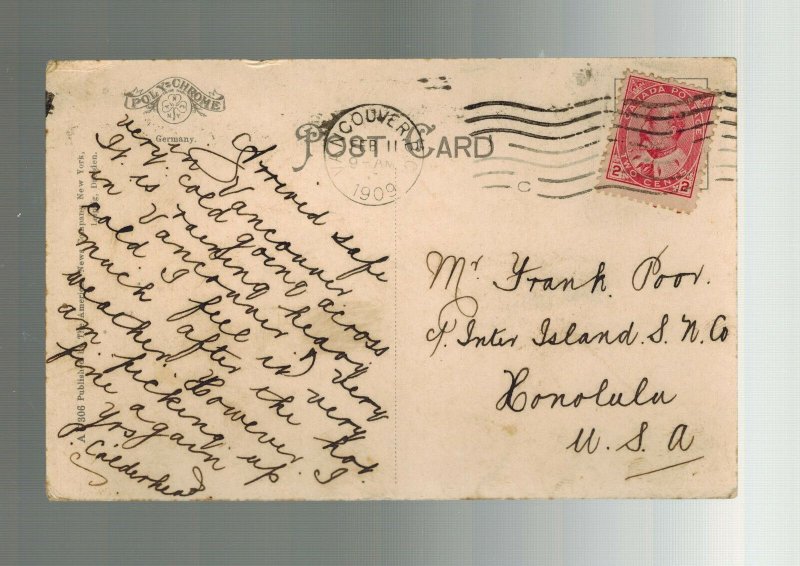 POLY-CHROME
Germany.
POST CARD
VANCOUVER B.C.
FEB 11
9-AM
1909
C
CANADA POSTAGE
2 TWO CENTS 2
Arrived safe
in Vancouver
very cold going across
It is raining heavy
in Vancouver & very
cold I feel it very
much after the hot
weather. However I
am picking up
fine again
Yrs
J. Calderhead
Mr Frank Poor.
Inter Island S. N. Co
Honolulu
U. S. A
Published by The American News Company, New York,
Leipzig, Dresden.